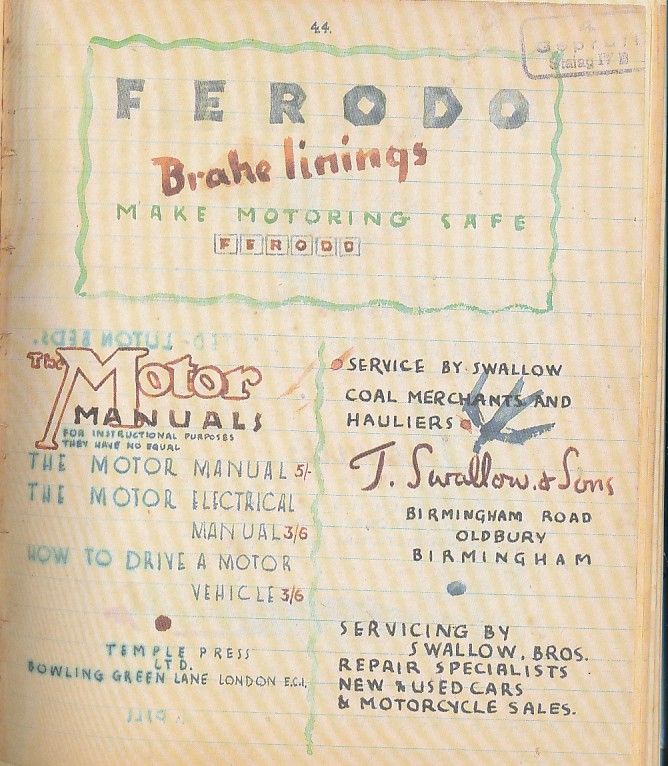 44.
Geprüft
Stalag IV B
FERODO
Brake linings
MAKE MOTORING SAFE
FERODO
The Motor
MANUALS
FOR INSTRUCTIONAL PURPOSES
THEY HAVE NO EQUAL
THE MOTOR MANUAL 5/-
THE MOTOR ELECTRICAL
MANUAL 3/6
HOW TO DRIVE A MOTOR
VEHICLE 3/6
TEMPLE PRESS
LTD.
BOWLING GREEN LANE LONDON E.C.1.
SERVICE BY SWALLOW
COAL MERCHANTS AND
HAULIERS
T. Swallow. & Sons
BIRMINGHAM ROAD
OLDBURY
BIRMINGHAM
SERVICING BY
SWALLOW. BROS.
REPAIR SPECIALISTS
NEW & USED CARS
& MOTORCYCLE SALES.